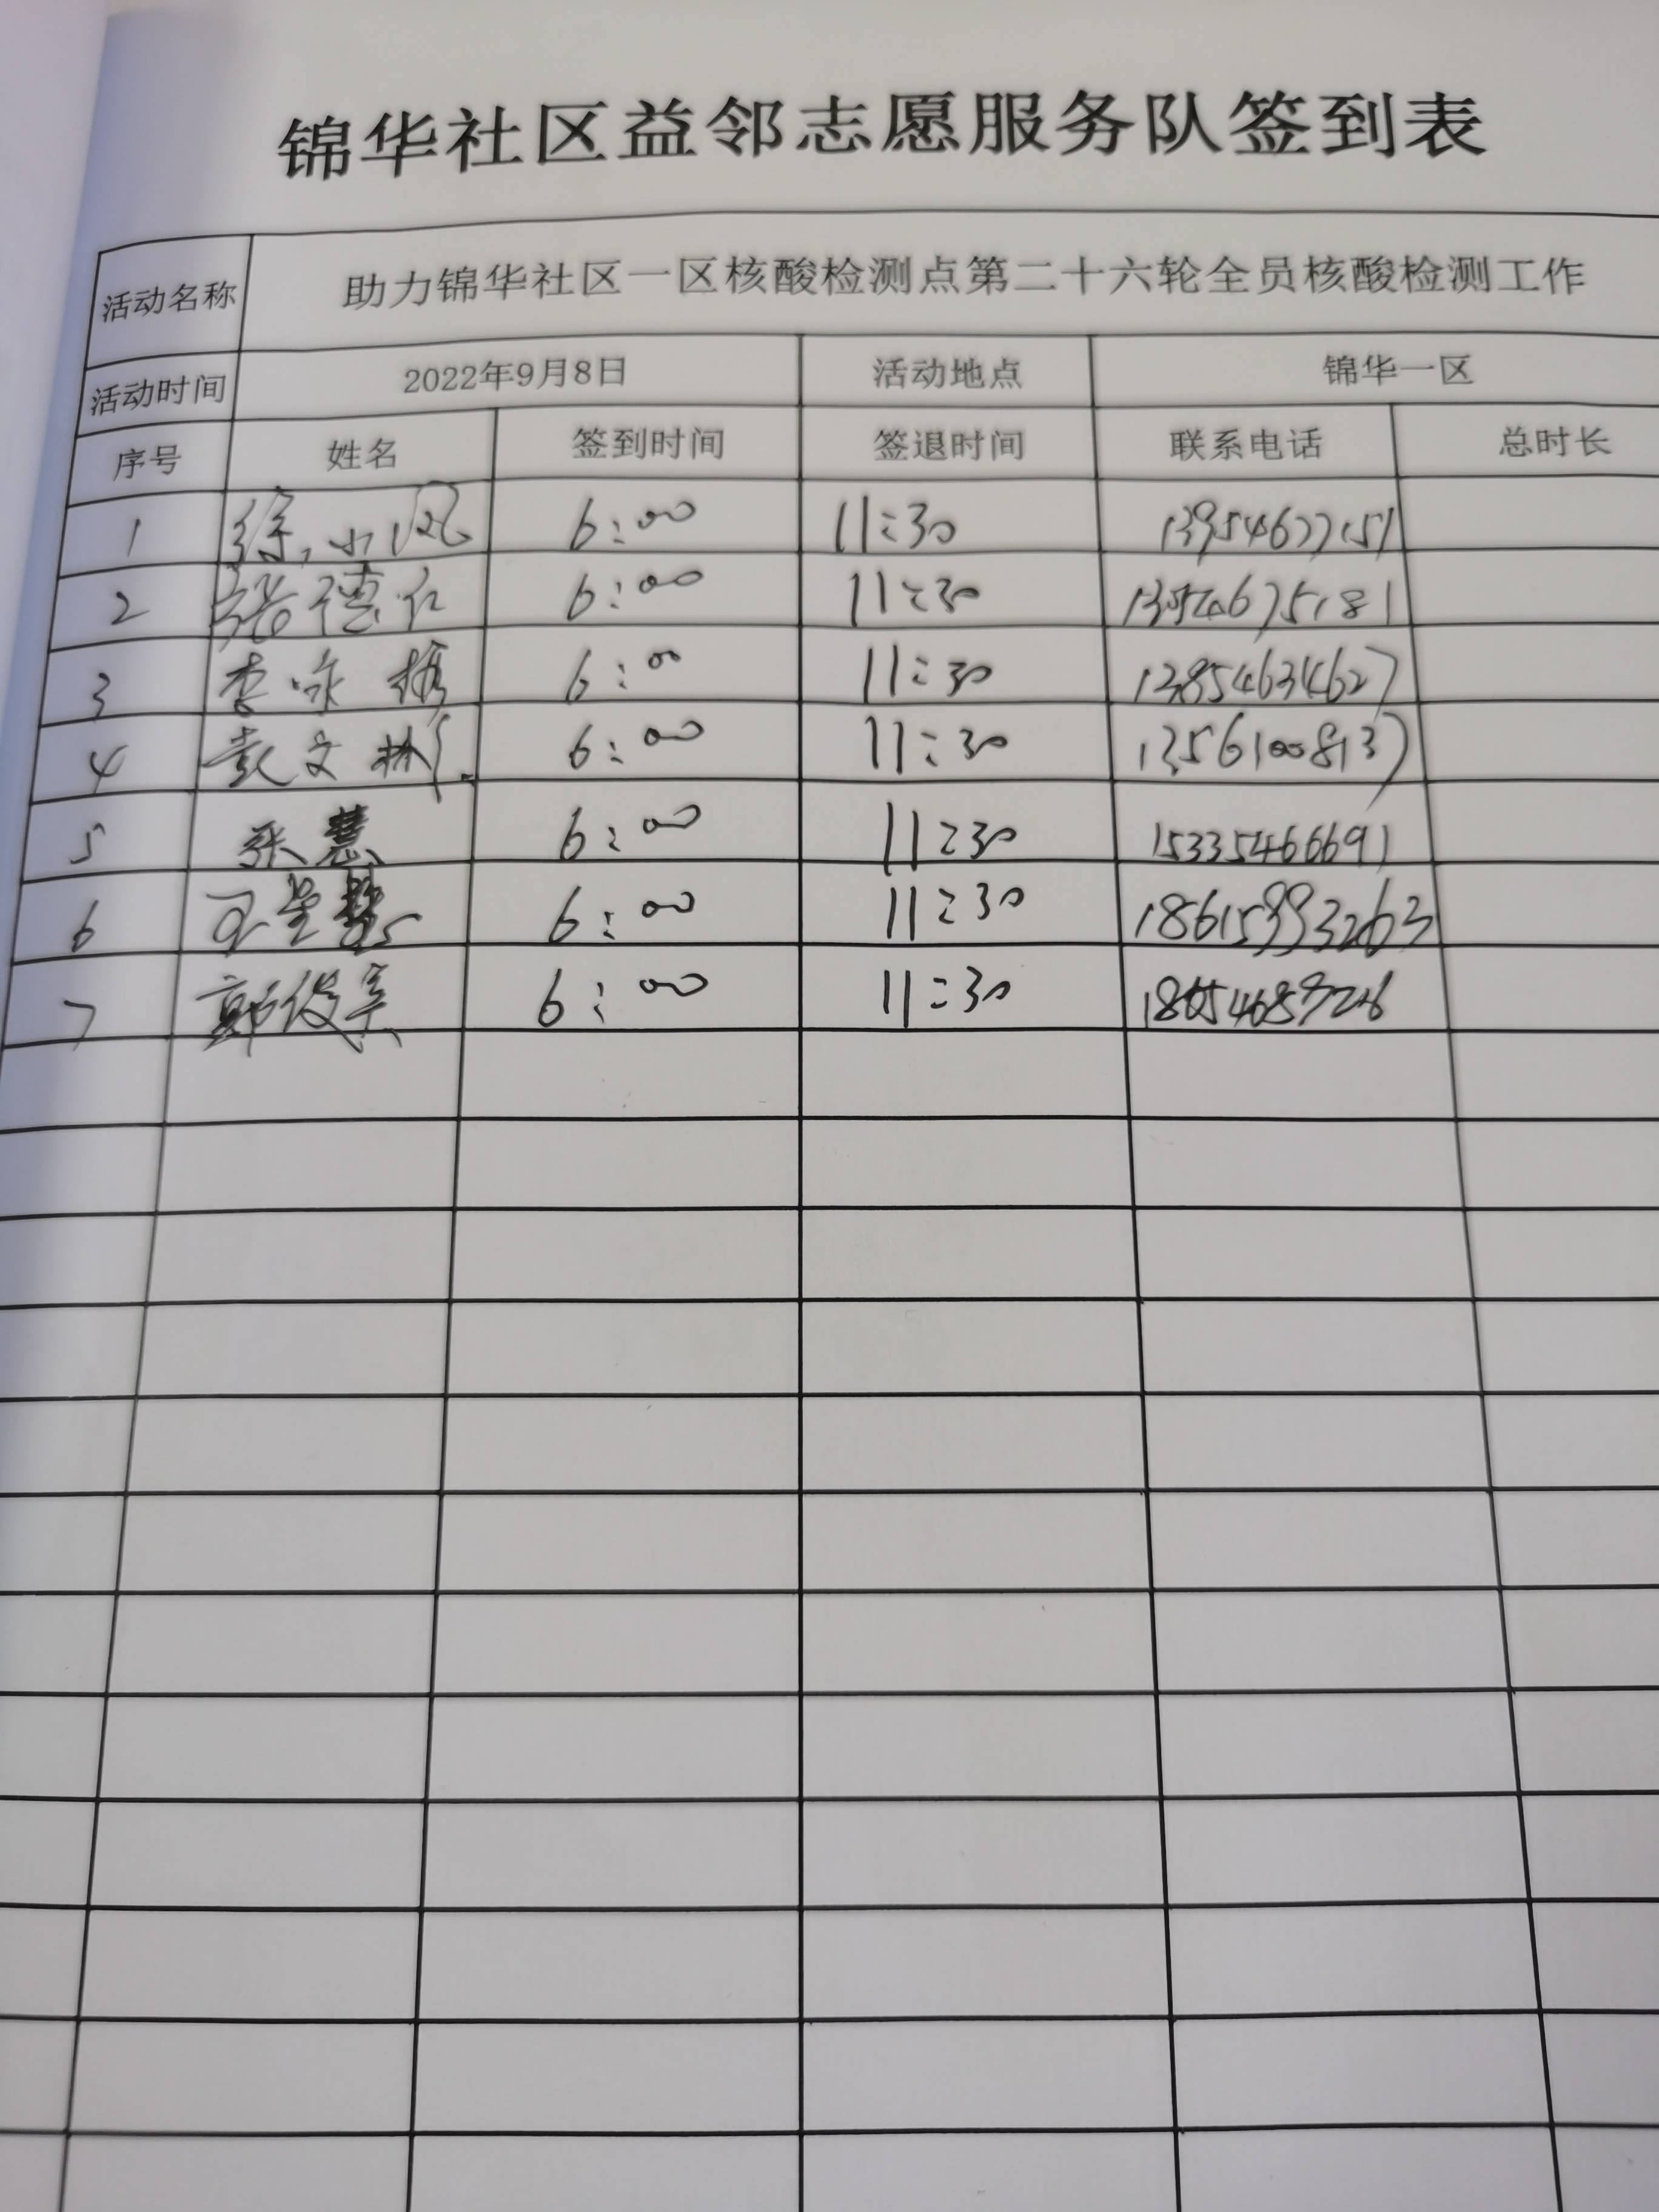 锦华社区益邻志愿服务队签到表
活动名称 助力锦华社区一区核酸检测点第二十六轮全员核酸检测工作
活动时间 2022年9月8日 活动地点 锦华一区
序号 姓名 签到时间 签退时间 联系电话 总时长
1 徐小风 6:00 11:30 13954677151
2 德仁 6:00 11:30
3 李咏梅 6:00 11:30 13854634627
4 袁文彬 6:00 11:30 13561008137
5 张慧 6:00 11:30 15335466691
6 6:00 11:30 18615993263
7 郭俊美 6:00 11:30